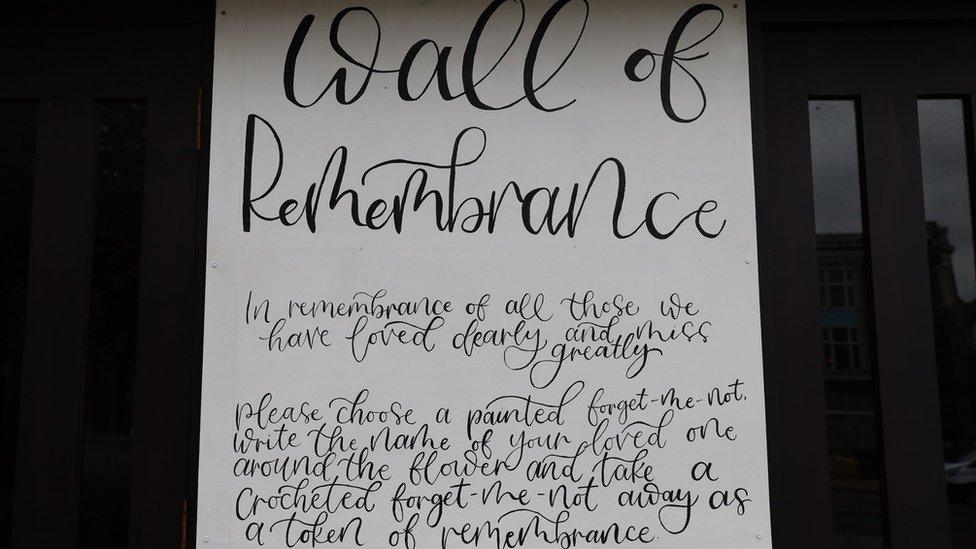 Wall of
Remembrance
In remembrance of all those we
have loved dearly and miss
greatly
please choose a painted forget-me-not,
write the name of your loved one
around the flower and take a
crocheted forget-me-not away as
a token of remembrance.